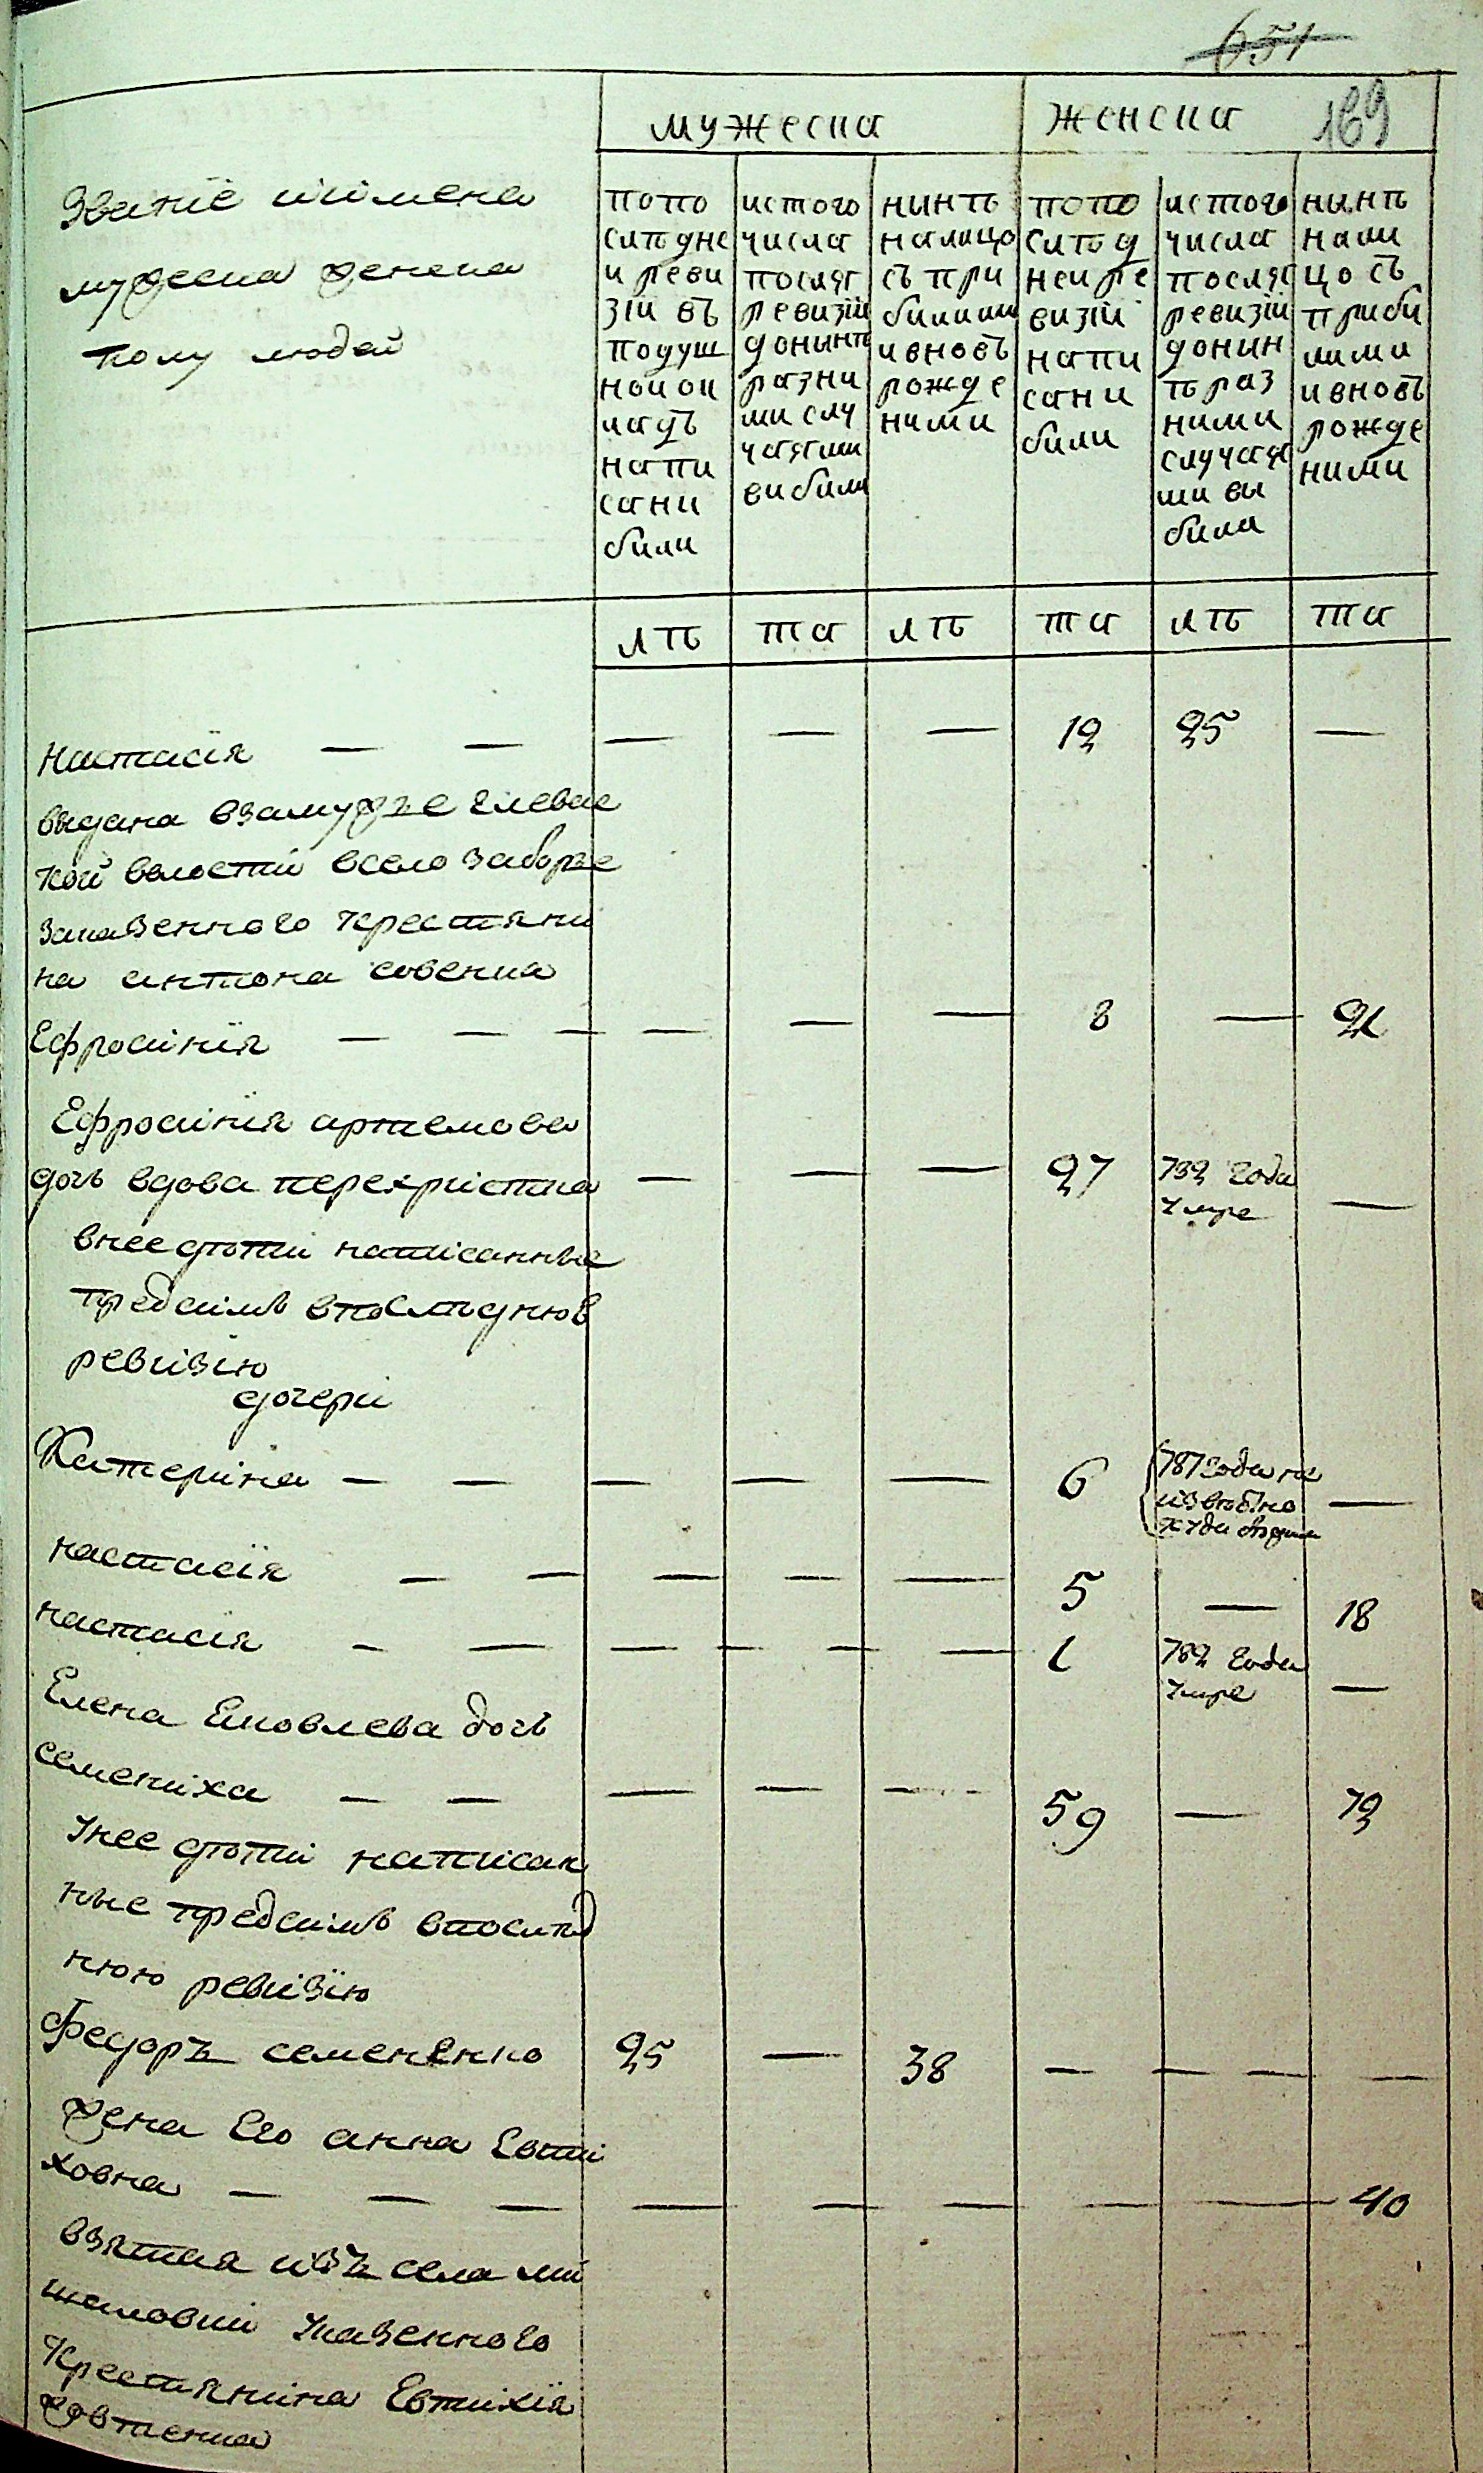 651
мужеска
женска
169
Званіе иимена
мужеска женска
полу людей
попо
слѣдне
й реви
зіи въ
подуш
ной ок
ладъ
напи
сани
били
истого
числа
после
ревизіи
донынѣ
разни
ми слу
чаями
вибили
нынѣ
налицо
съ при
билими
ивновъ
рожде
ними
попо
слѣд
ней ре
визіи
напи
сани
били
истого
числа
после
ревизіи
донын
ѣ раз
ними
случая
ми вы
били
нынѣ
нали
цо съ
приби
лими
ивновъ
рожде
ними
лѣ
та
лѣ
та
лѣ
та
Настасія — — — — — 12 25 —
выдана взамужъе Елевае
кой волости всело Заборъе
закозенного крестяни
на антона совенка
Ефросинія — — — — — — 8 — 21
Ефросинія артемова
дочь вдова перехристка — — — 27 792 года —
умре
внее дѣти написанные
предсимъ впослѣднюю
ревизію
дочери
Катерина — — — — — 6 787 года не —
извѣсно
куда
настасія — — — — — 5 — 18
настасія — — — — — 1 782 года —
умре
Елена Яковлева дочь
семениха — — — — — 59 — 72
Унее дѣти написан
ные предсимъ впослѣд
нюю ревизію
Федоръ семененко 25 — 38 — — — —
жена Его анна Евти
ховна — — — — — — — — 40
взятая изъ села ми
шаловки Казенного
Крестянина Евтихія